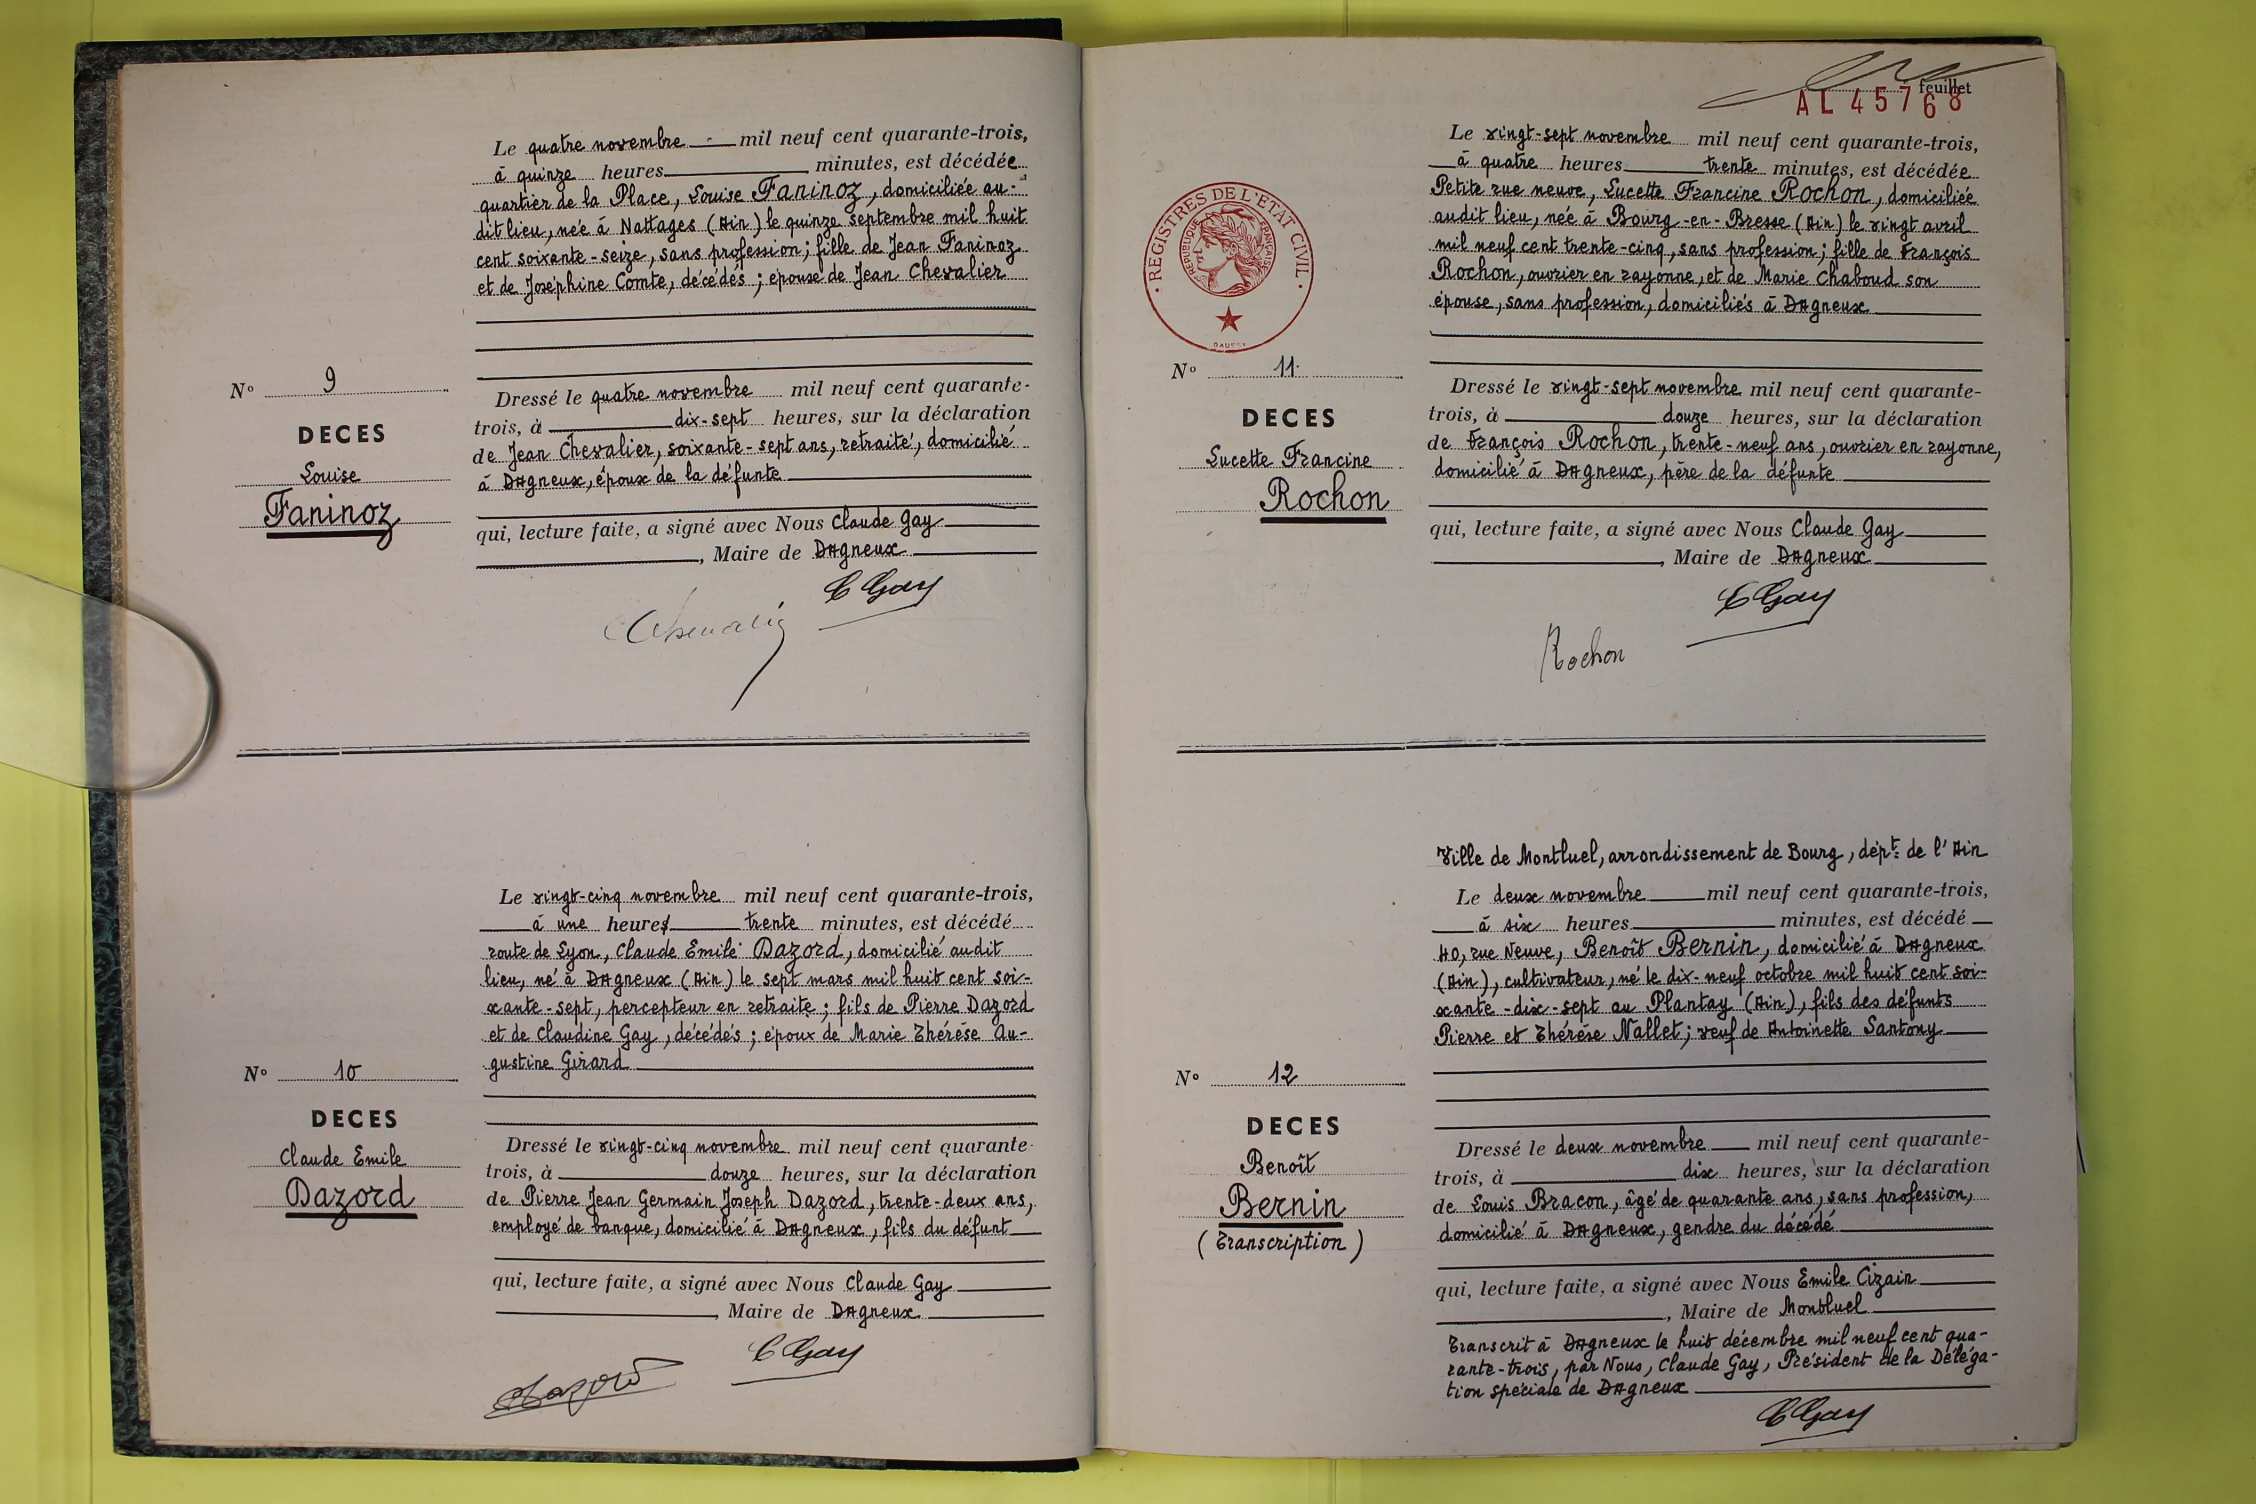 Le quatre novembre mil neuf cent quarante-trois,
à quinze heures minutes, est décédée
quartier de la Place, Louise Faninoz, domiciliée au-
dit lieu, née à Nattages (Ain) le quinze septembre mil huit
cent soixante-seize, sans profession; fille de Jean Faninoz
et de Joséphine Comte, décédés; épouse de Jean Chevalier
N° 9
DECES
Louise
Faninoz
Dressé le quatre novembre mil neuf cent quarante-
trois, à dix-sept heures, sur la déclaration
de Jean Chevalier, soixante-sept ans, retraité, domicilié
à Dagneux, époux de la défunte
qui, lecture faite, a signé avec Nous Claude Gay
, Maire de Dagneux
C Gay
Chevalier
Le vingt-cinq novembre mil neuf cent quarante-trois,
à une heures trente minutes, est décédé
route de Lyon, Claude Emile Dazord, domicilié audit
lieu, né à Dagneux (Ain) le sept mars mil huit cent soi-
xante-sept, percepteur en retraite; fils de Pierre Dazord
et de Claudine Gay, décédés; époux de Marie Thérèse Au-
gustine Girard
N° 10
DECES
Claude Emile
Dazord
Dressé le vingt-cinq novembre mil neuf cent quarante-
trois, à douze heures, sur la déclaration
de Pierre Jean Germain Joseph Dazord, trente-deux ans,
employé de banque, domicilié à Dagneux, fils du défunt
qui, lecture faite, a signé avec Nous Claude Gay
, Maire de Dagneux
C Gay
Dazord
feuillet
AL 45768
REGISTRES DE L'ETAT CIVIL
REPUBLIQUE FRANÇAISE
Le vingt-sept novembre mil neuf cent quarante-trois,
à quatre heures trente minutes, est décédée
Petite rue neuve, Lucette Francine Rochon, domiciliée
audit lieu, née à Bourg-en-Bresse (Ain) le vingt avril
mil neuf cent trente-cinq, sans profession; fille de François
Rochon, ouvrier en rayonne, et de Marie Chaboud son
épouse, sans profession, domiciliés à Dagneux
N° 11
DECES
Lucette Francine
Rochon
Dressé le vingt-sept novembre mil neuf cent quarante-
trois, à douze heures, sur la déclaration
de François Rochon, trente-neuf ans, ouvrier en rayonne,
domicilié à Dagneux, père de la défunte
qui, lecture faite, a signé avec Nous Claude Gay
, Maire de Dagneux
C Gay
Rochon
Ville de Montluel, arrondissement de Bourg, dépt de l'Ain
Le deux novembre mil neuf cent quarante-trois,
à six heures minutes, est décédé
40, rue Neuve, Benoît Bernin, domicilié à Dagneux
(Ain), cultivateur, né le dix-neuf octobre mil huit cent soi-
xante-dix-sept au Plantay (Ain), fils des défunts
Pierre et Thérèse Nallet; veuf de Antoinette Santony
N° 12
DECES
Benoît
Bernin
(Transcription)
Dressé le deux novembre mil neuf cent quarante-
trois, à dix heures, sur la déclaration
de Louis Bracon, âgé de quarante ans, sans profession,
domicilié à Dagneux, gendre du décédé
qui, lecture faite, a signé avec Nous Emile Cizain
, Maire de Montluel
Transcrit à Dagneux le huit décembre mil neuf cent qua-
rante-trois, par Nous, Claude Gay, Président de la Déléga-
tion spéciale de Dagneux
C Gay